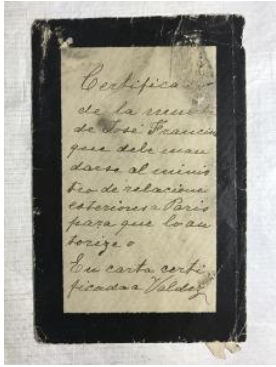 Certifica
de la
de José Francis
que debe man
darse al minis
tro de relacione
esteriores a Paris
para que lo au
torize o
En carta certi
ficada a Valdez